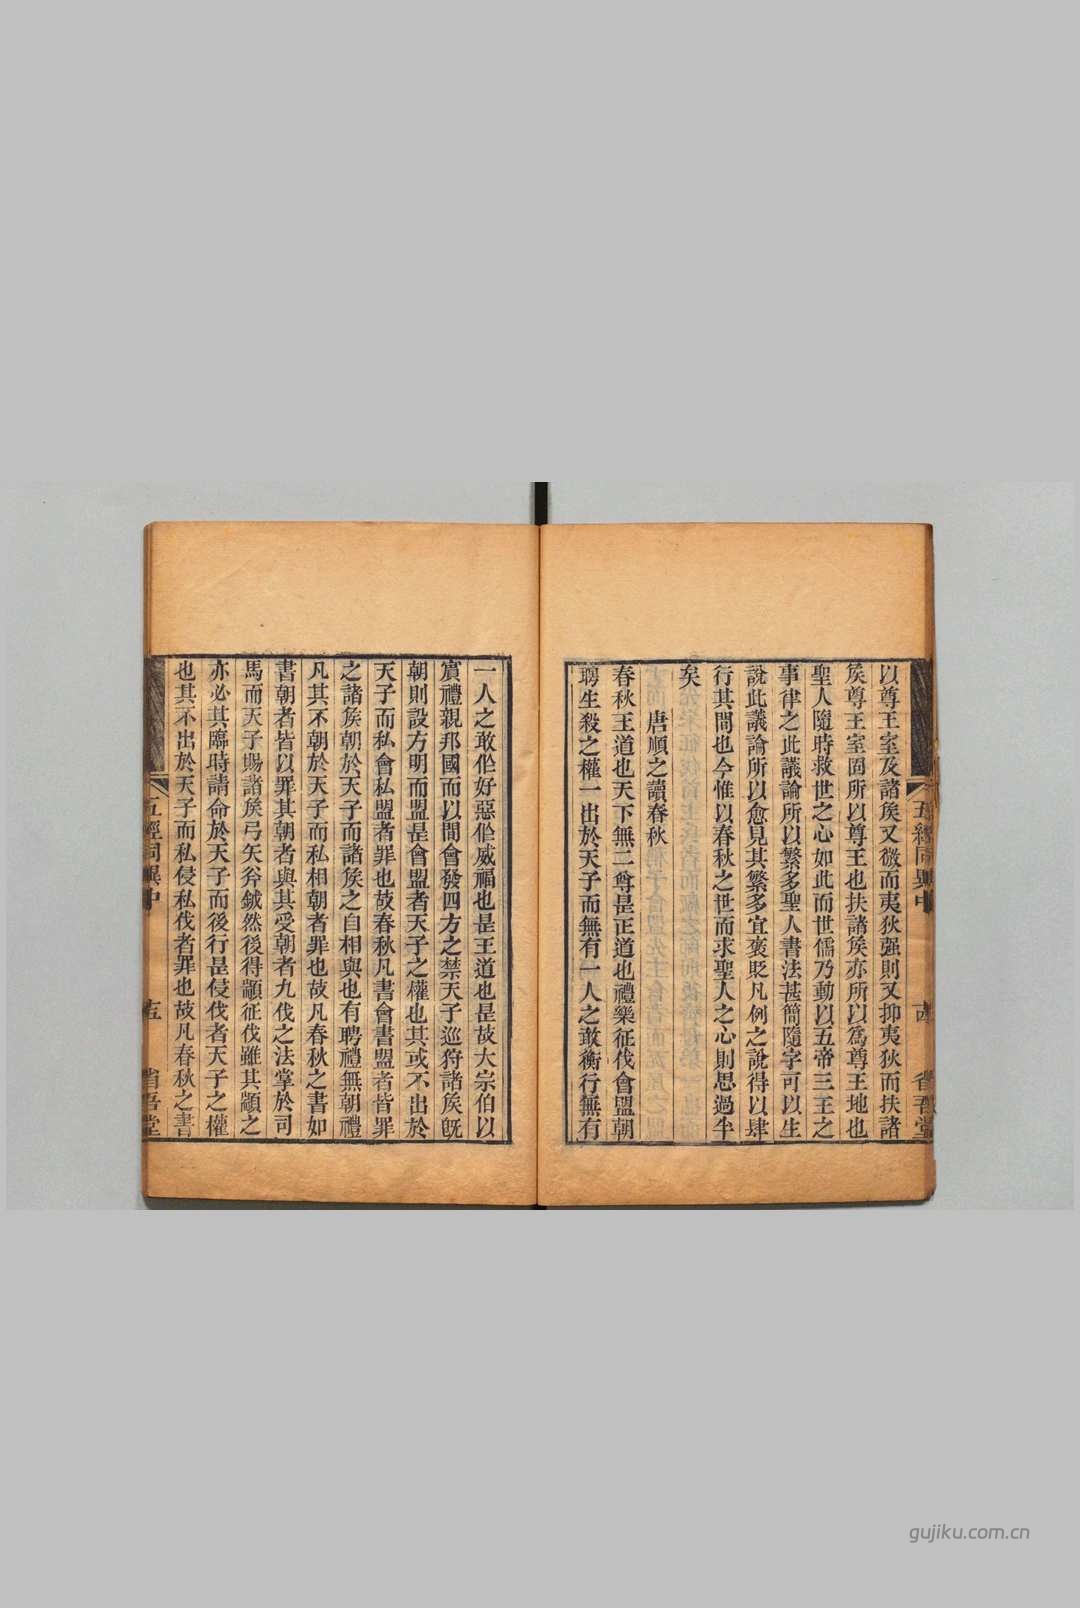 以尊王室及諸矦又微而夷狄强則又抑夷狄而扶諸
矦尊王室固所以尊王也扶諸矦亦所以爲尊王地也
聖人隨時救世之心如此而世儒乃動以五帝三王之
事律之此議論所以繁多聖人書法甚簡隨字可以生
說此議論所以愈見其繁多宜褒貶凡例之說得以肆
行其間也今惟以春秋之世而求聖人之心則思過半
矣
唐順之讀春秋
春秋王道也天下無二尊是正道也禮樂征伐會盟朝
聘生殺之權一出於天子而無有一人之敢衡行無有
五經同異中
省吾堂
一人之敢作好惡作威福也是王道也是故大宗伯以
賓禮親邦國而以間會發四方之禁天子巡狩諸矦旣
朝則設方明而盟是會盟者天子之權也其或不出於
天子而私會私盟者罪也故春秋凡書會書盟者皆罪
之諸矦朝於天子而諸矦之自相與也有聘禮無朝禮
凡其不朝於天子而私相朝者罪也故凡春秋之書如
書朝者皆以罪其朝者與其受朝者九伐之法掌於司
馬而天子賜諸矦弓矢斧鉞然後得顓征伐雖其顓之
亦必其臨時請命於天子而後行是侵伐者天子之權
也其不出於天子而私侵私伐者罪也故凡春秋之書
五經同異中
省吾堂
gujiku.com.cn